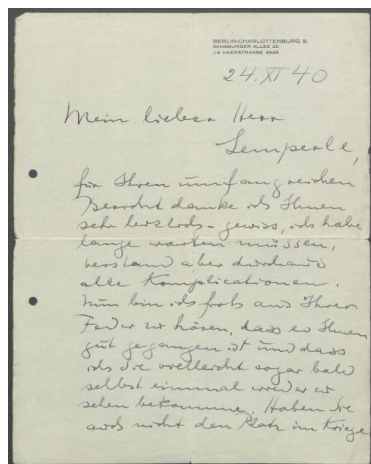 BERLIN-CHARLOTTENBURG 9,
ALLEE
J 9 HEERSTRASSE
24. XI 40
Mein lieber Herr
Lemperle,
für Ihren umfangreichen
Bericht danke ich Ihnen
sehr herzlich - gewiss, ich habe
lange warten müssen,
verstand aber durchaus
alle Komplicationen.
Nun bin ich froh aus Ihrer
Feder zu hören, dass es Ihnen
gut gegangen ist und dass
ich Sie vielleicht sogar bald
selbst einmal wieder zu
sehen bekomme. Haben Sie
auch nicht den Platz im Kriege